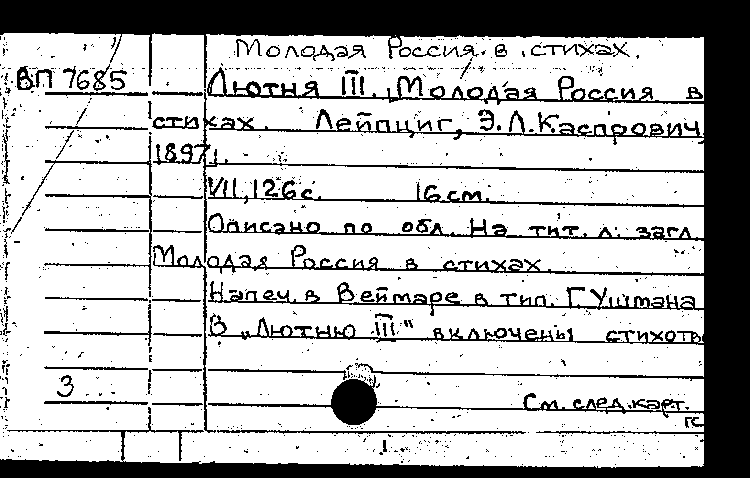 Молодая Россия в стихах.
ВП 7685
Лютня III. Молодая Россия в
стихах. Лейпциг, Э.Л.Каспрович,
1897.
VII, 126 с. 16 см.
Описано по обл. На тит. л. загл
Молодая Россия в стихах.
Напеч. в Веймаре в тип. Г. Ушмана
В „Лютню III" включены стихотв
3
См. след. карт.
гс
1